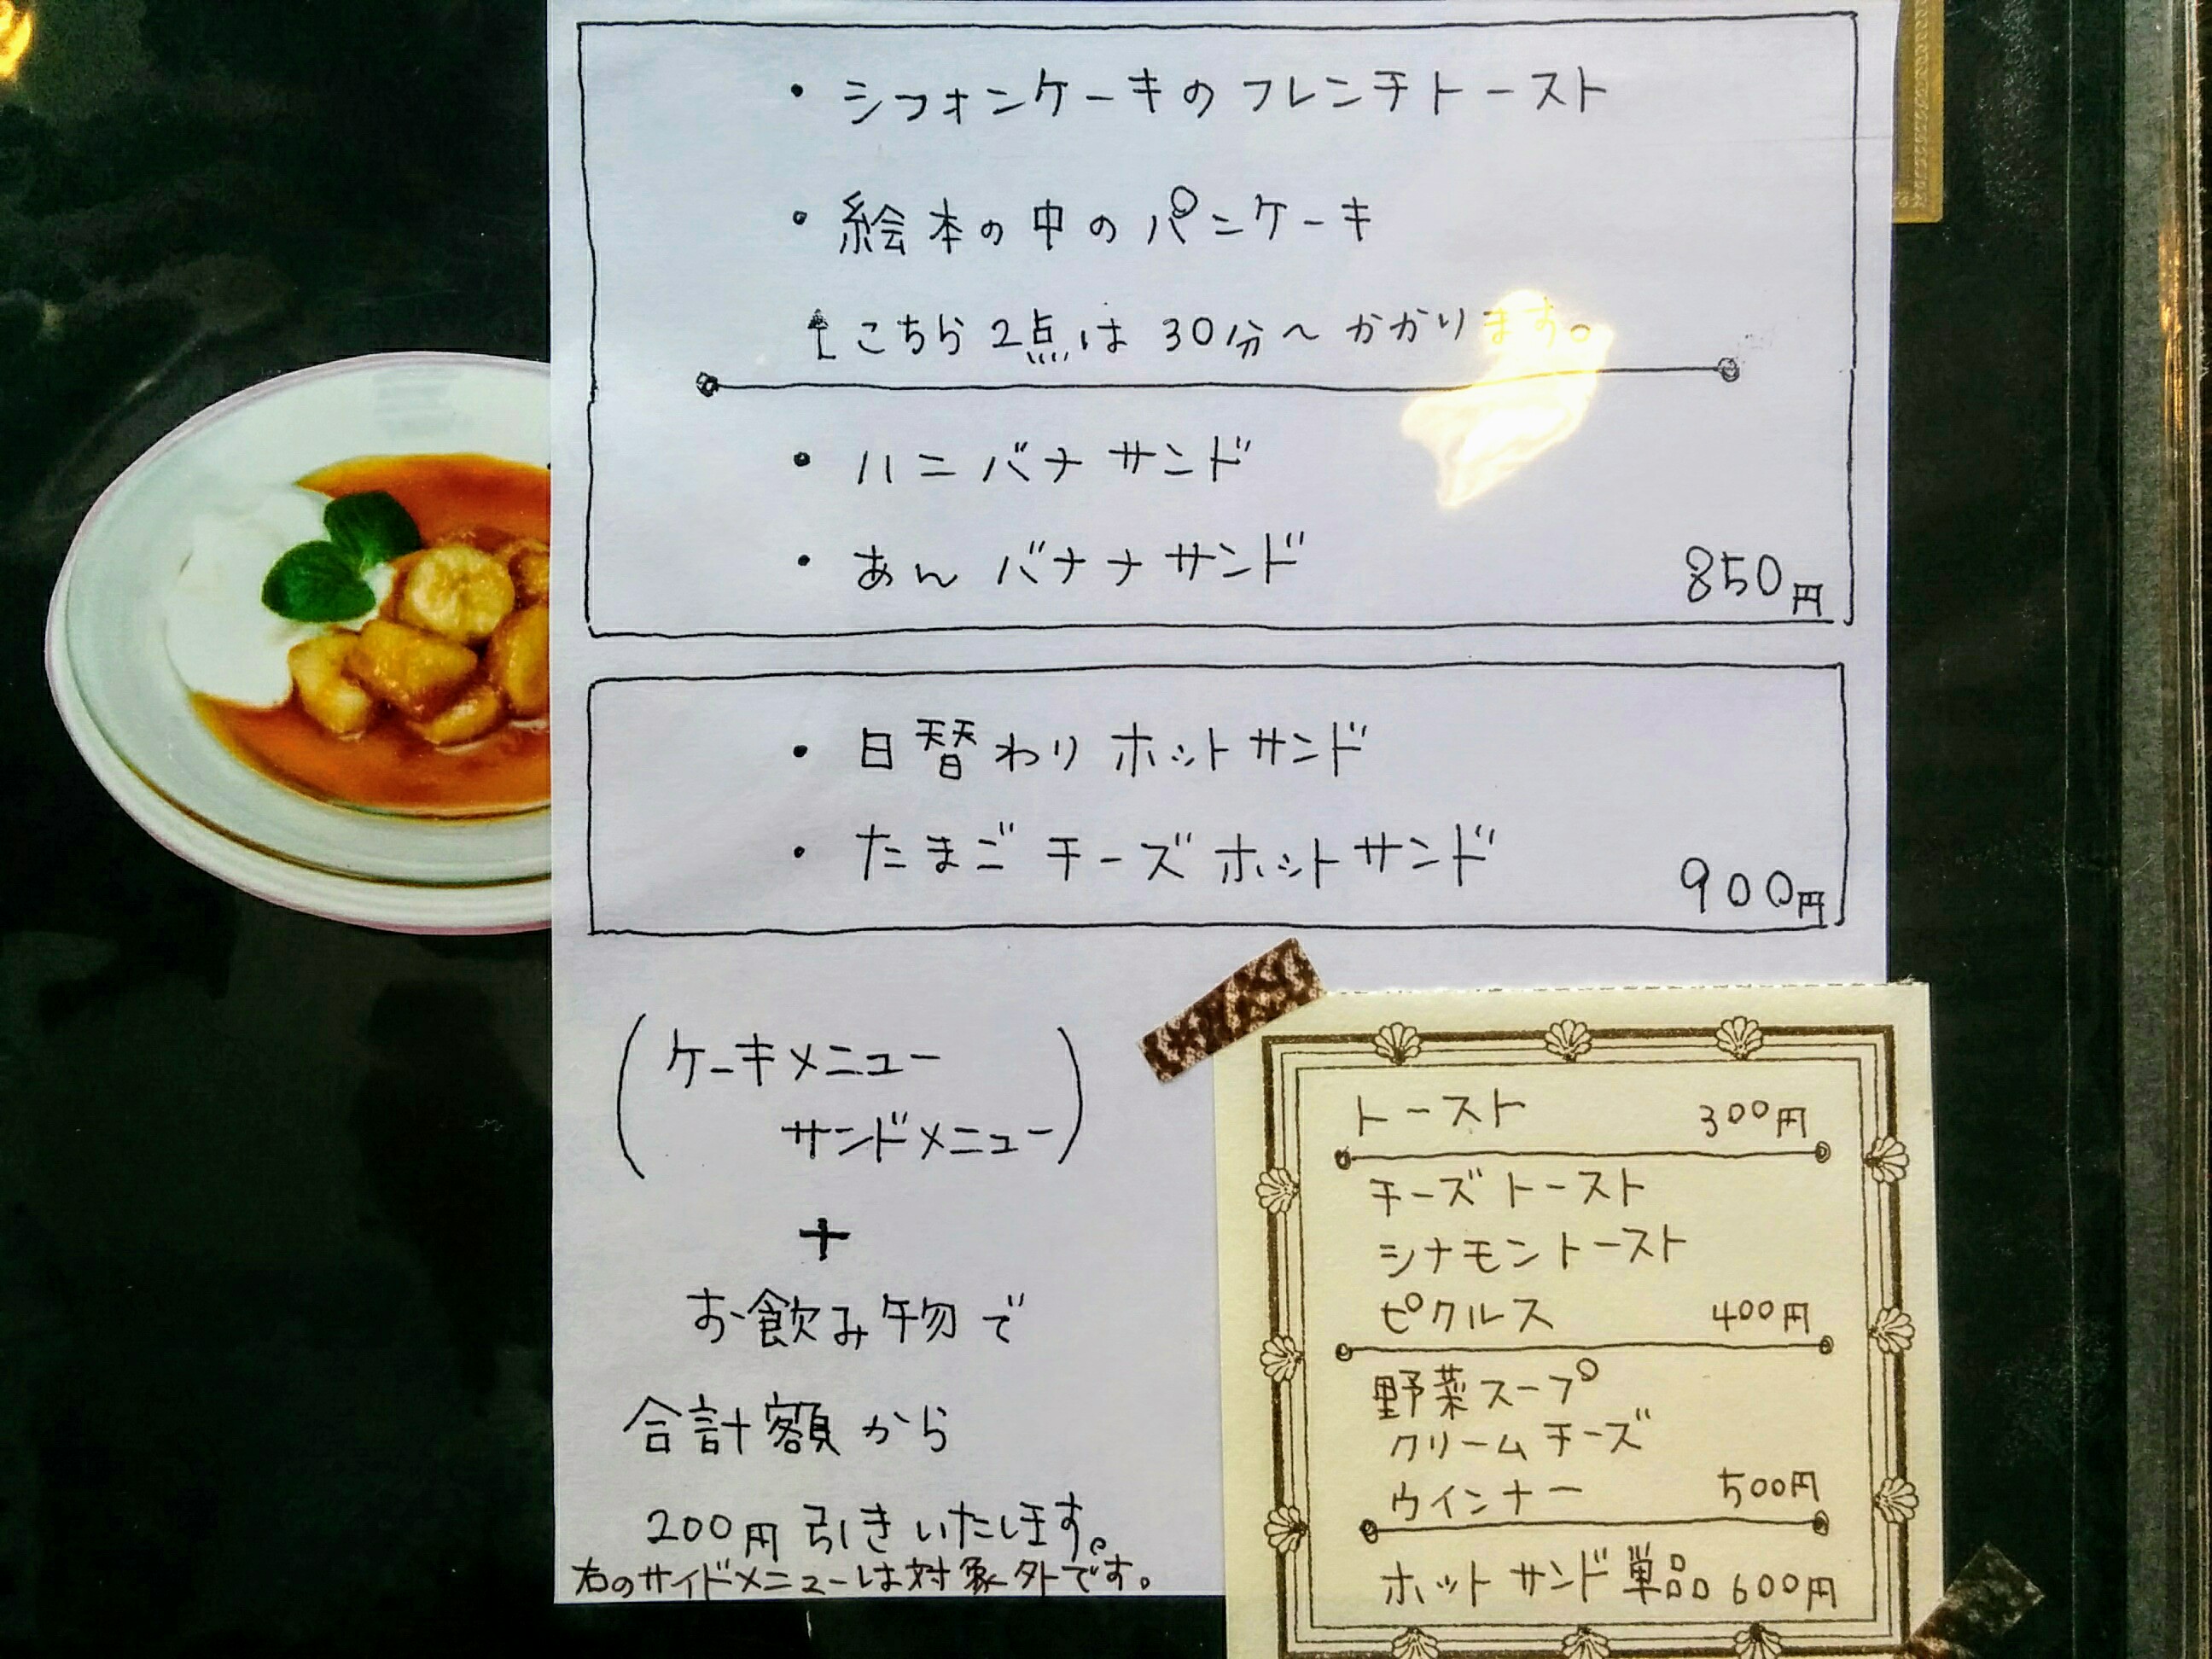 ・シフォンケーキのフレンチトースト
・絵本の中のパンケーキ
↑こちら2点は30分〜かかります。
・ハニバナサンド
・あんバナナサンド
850円
・日替わりホットサンド
・たまごチーズホットサンド
900円
(ケーキメニュー
サンドメニュー)
+
お飲み物で
合計額から
200円引きいたします。
右のサイドメニューは対象外です。
トースト 300円
チーズトースト
シナモントースト
ピクルス 400円
野菜スープ
クリームチーズ
ウインナー 500円
ホットサンド単品600円